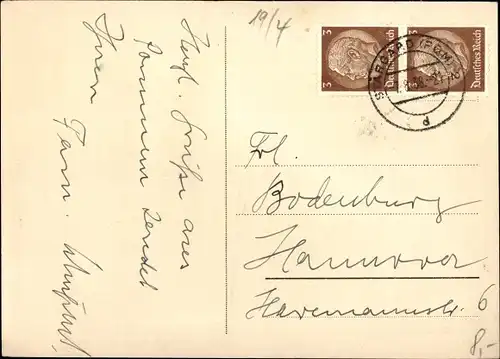 19/4
3 Deutsches Reich
3 Deutsches Reich
STARGARD (POM)
d
Herzl. Grüße aus
Pommern sendet
Ihnen
Fam.
Frl.
Bodenburg
Hannover
Havemannstr. 6
8,-